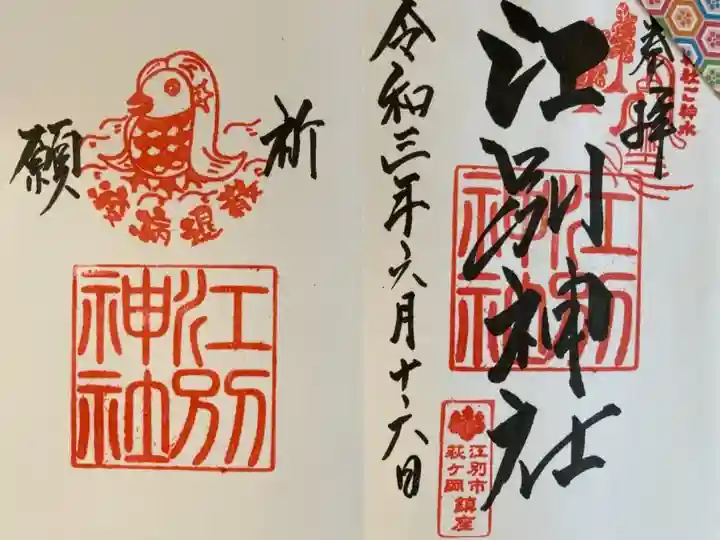 奉拝
江別神社
江別
神社
江別市
萩ケ岡
鎮座
令和三年六月十六日
祈
願
疫病退散
江別
神社